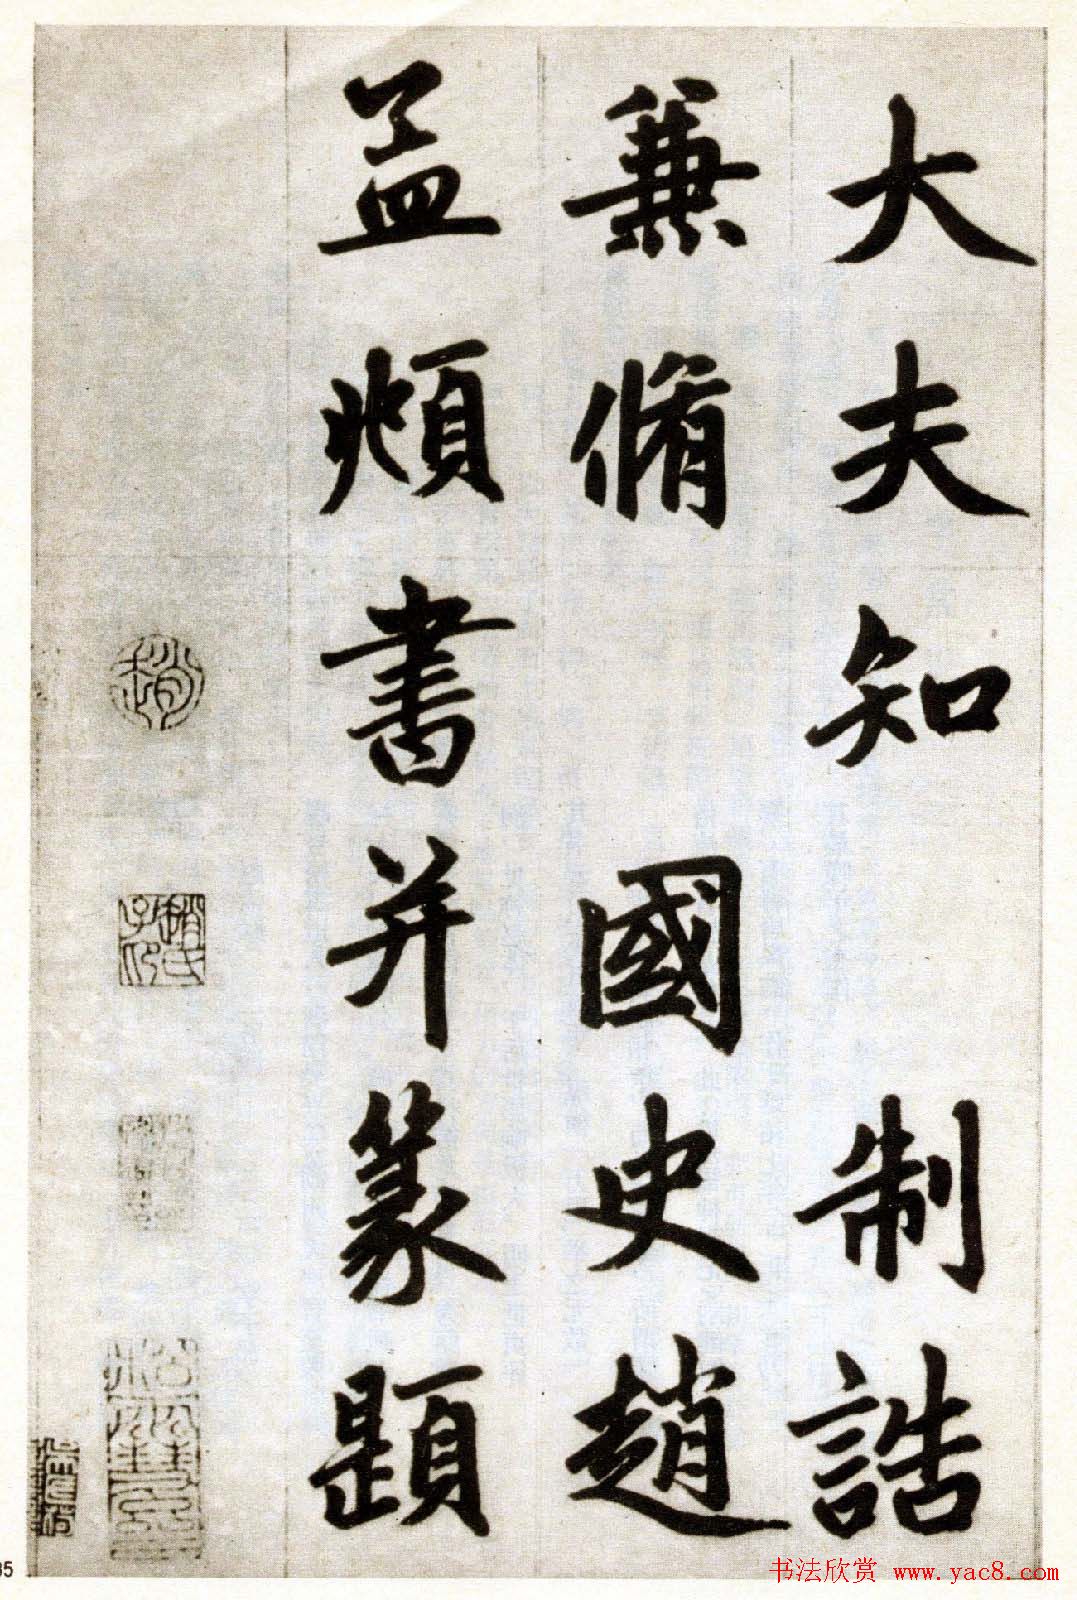 大夫知制誥
兼脩國史趙
孟頫書并篆題
趙
趙氏子印
35
书法欣赏 www.yac8.com